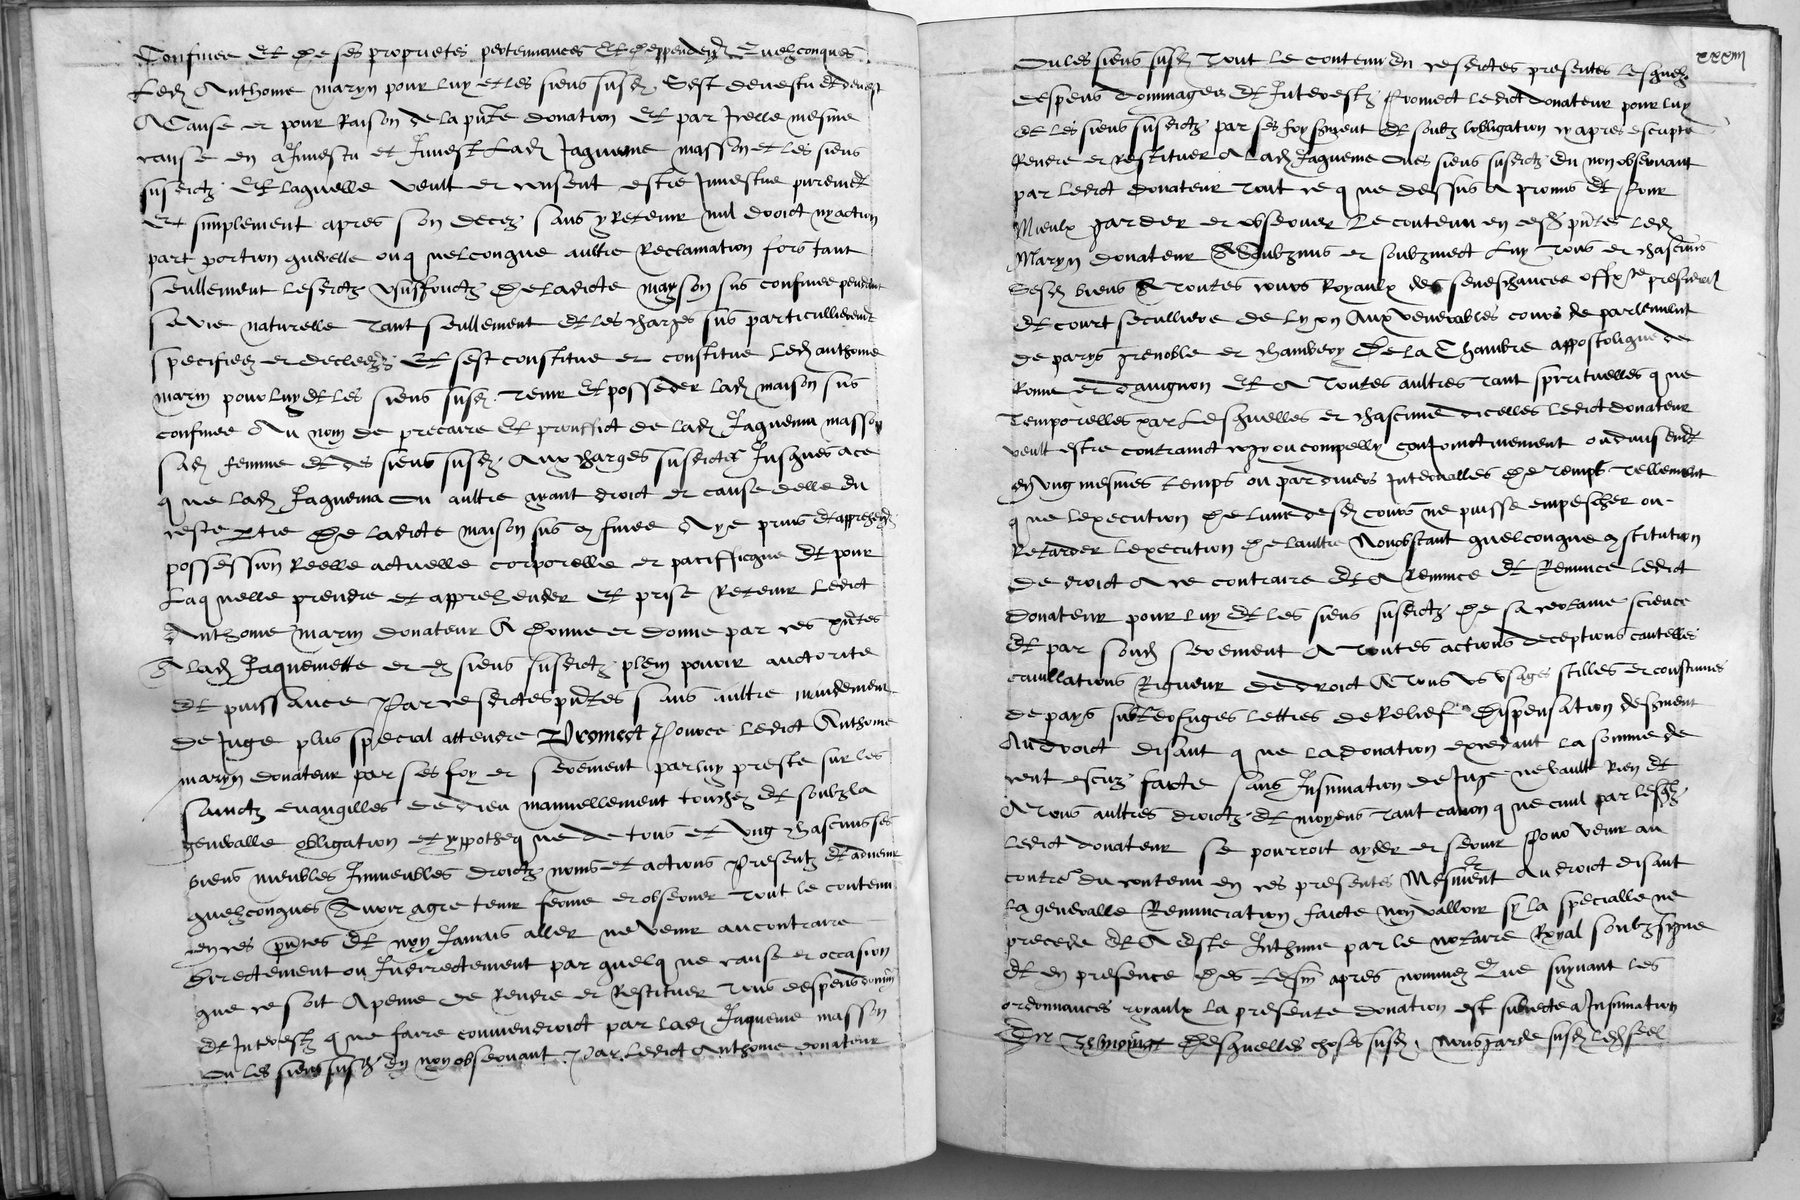 Confinee Et de ses proprietes pertenances Et deppendences Quelzconques
Led Anthome maryn pour luy et les siens susd. Sest devestu et devest
A Cause et pour Raison de la pnte donation Et par Icelle mesme
cause en a Jnvestu et Jnvest Lad Jaqueme masson et les siens
susdictz Et laquelle veult et consent estre Jnvestue purement
Et simplement apres son deces sans y Retenir nul droict ny action
part portion querelle ou quelconque aultre Reclamation fors tant
seullement lesdictz Usufruictz De ladicte mayson sus confinee pendant
se vie naturelle tant seullement et les charges sus particullierement
specifiees et declerees Et sest constitue et constitue Led anthome
marin pour luy et les siens susd. tenir Et posseder lad maison sus
confinee Au nom de precaire Et prouffict de lad Jaquema masson
sad femme et des siens susd. Aux charges susdictes Jusques a ce
que lad Jaquema ou aultre ayant droict et cause delle du
reste ptie De ladicte maison sus confinee Aye prins et apprehende
possession Reelle actuelle corporelle et pacifficque et pour
Laquelle prendre et apprehender Et prise Retenir Ledict
Anthome marin donateur A donne et donne par ces pntes
A lad Jaquemette et es siens susdictz plein povoir auctorite
et puissance Par cesdictes pntes sans aultre mandement
de Juge plus special attendre Promect Pource Ledict Anthome
maryn donateur par ses foy et serement par luy preste sur les
sainctz evangilles de dieu manuellement touchez et soubz la
generalle obligation et ypotheque de tous et ung chascuns ses
biens meubles Jmmeubles droictz noms et actions Presentz et advenir
quelzconques Avoir agre tenir ferme et observer tout le contenu
en ces pntes et non Jamais aller ne venir au contraire
directement ou Jndirectement par quelque cause et occasion
que ce soit A peine de Rendre et Restituer tous despens domm
et Jnterestz que faire conviendroict par lad Jaqueme masson
ou les siens susd en non observant Par Ledict Anthome donateur
xxxiiii
Ou les siens susd tout le contenu en cesdictes presentes lesquelz
despens dommages et Jnterestz Promect ledict donateur pour luy
et les siens susdictz par ses foy serment et soubz lobligation cy apres escripte
Rendre et Restituer A lad Jaqueme ou es siens susdictz en non observant
par ledict donateur tout ce que dessus a promis et Pour
Mieulx garder et observer Le contenu en cesd pntes Led
Maryn donateur A Soubzmis et soubzmect Luy tous et chascuns
Sesd biens A toutes cours Royaulx des seneschaucee presidial
et court seculliere de Lyon Aux venerables cours de parlement
de parys grenoble et chambery De la Chambre appostolique de
Rome et d'avignon Et A toutes aultres tant spirituelles que
temporelles par Lesquelles et chascune dicelles ledict donateur
veult estre contrainct ou compelly conjoinctement ou
en ung mesmes temps ou par divers Jntervalles De temps tellement
que lexecution De lune desd cours ne puisse empescher ou
Retarder lexecution De laultre Nonobstant quelconque constitution
de droict A ce contraire et A Renunce et Renunce Ledict
donateur pour luy et les siens susdictz De sa certaine science
et par sond serement A toutes actions deceptions cautelles
cavillations Rigueur de droict A tous us usages stilles et coustumes
de pays subterfuges lettres de Relief Dispensation de serment
Au droict disant que la donation excedant la somme de
cent escuz faicte sans Jnsinuation de Juge ne vault Rien et
A tous aultres droictz et moyens tant canon que civil par lesquelz
Ledict donateur se pourroit ayder et secour Pour venir au
contre du contenu en ces presentes Mesment Au droict disant
La generalle Renunciation faicte non valloir sy la specialle ne
precede et A este Jnthime par le notaire Royal soubzsigne
et en presence Des tesm apres nommez Que suyvant les
ordonnances royaulx la presente donation est subiecte a Jnsinuation
En tesmoing Desquelles choses susd. Nous garde susd led seel